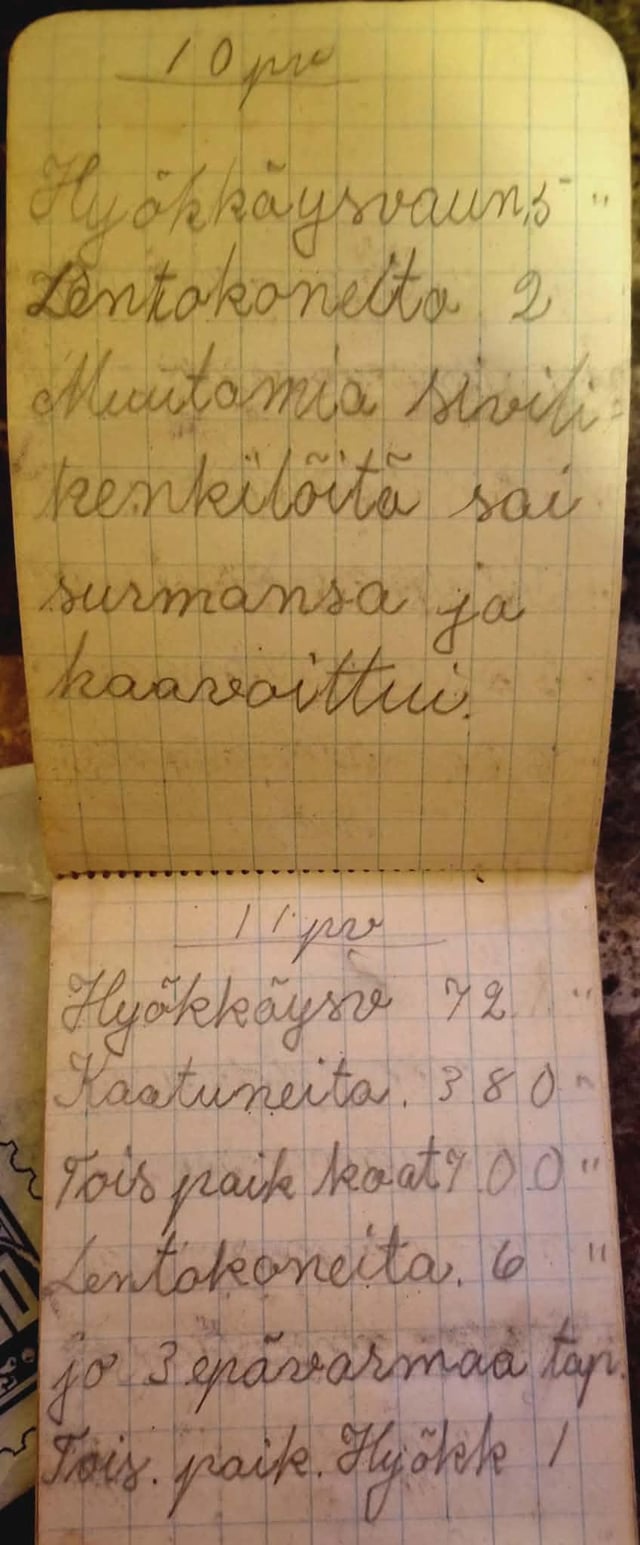 10 pv
Hyökkäysvaun. 5 "
Lentokoneita 2
Muutamia sivili-
henkilöitä sai
surmansa ja
haavoittui.
11 pv
Hyökkäysv 72 "
Kaatuneita. 380 "
Tois paik kaat 700 "
Lentokoneita. 6 "
ja 3 epävarmaa tap.
Tois. paik. Hyökk 1